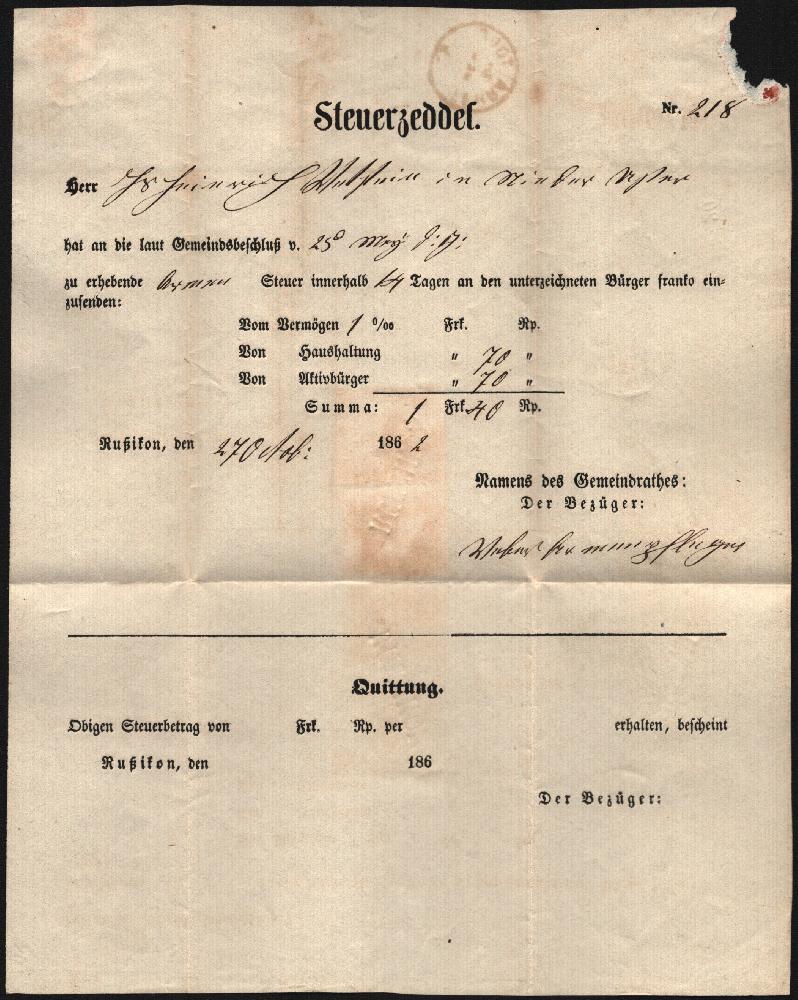 Steuerzeddel.
Nr. 218
Herr Hs Heinrich Wettstein in Nieder Uster
hat an die laut Gemeindsbeschluß v. 25ᵗ May d. J.
zu erhebende Armen Steuer innerhalb 14 Tagen an den unterzeichneten Bürger franko ein=
zusenden:
Vom Vermögen 1 ‰ Frk. Rp.
Von Haushaltung " 70 "
Von Aktivbürger " 70 "
Summa: 1 Frk. 40 Rp.
Rußikon, den 27 Octob: 1862
Namens des Gemeindrathes:
Der Bezüger:
Weber Armenpfleger
Quittung.
Obigen Steuerbetrag von Frk. Rp. per erhalten, bescheint
Rußikon, den 186
Der Bezüger: